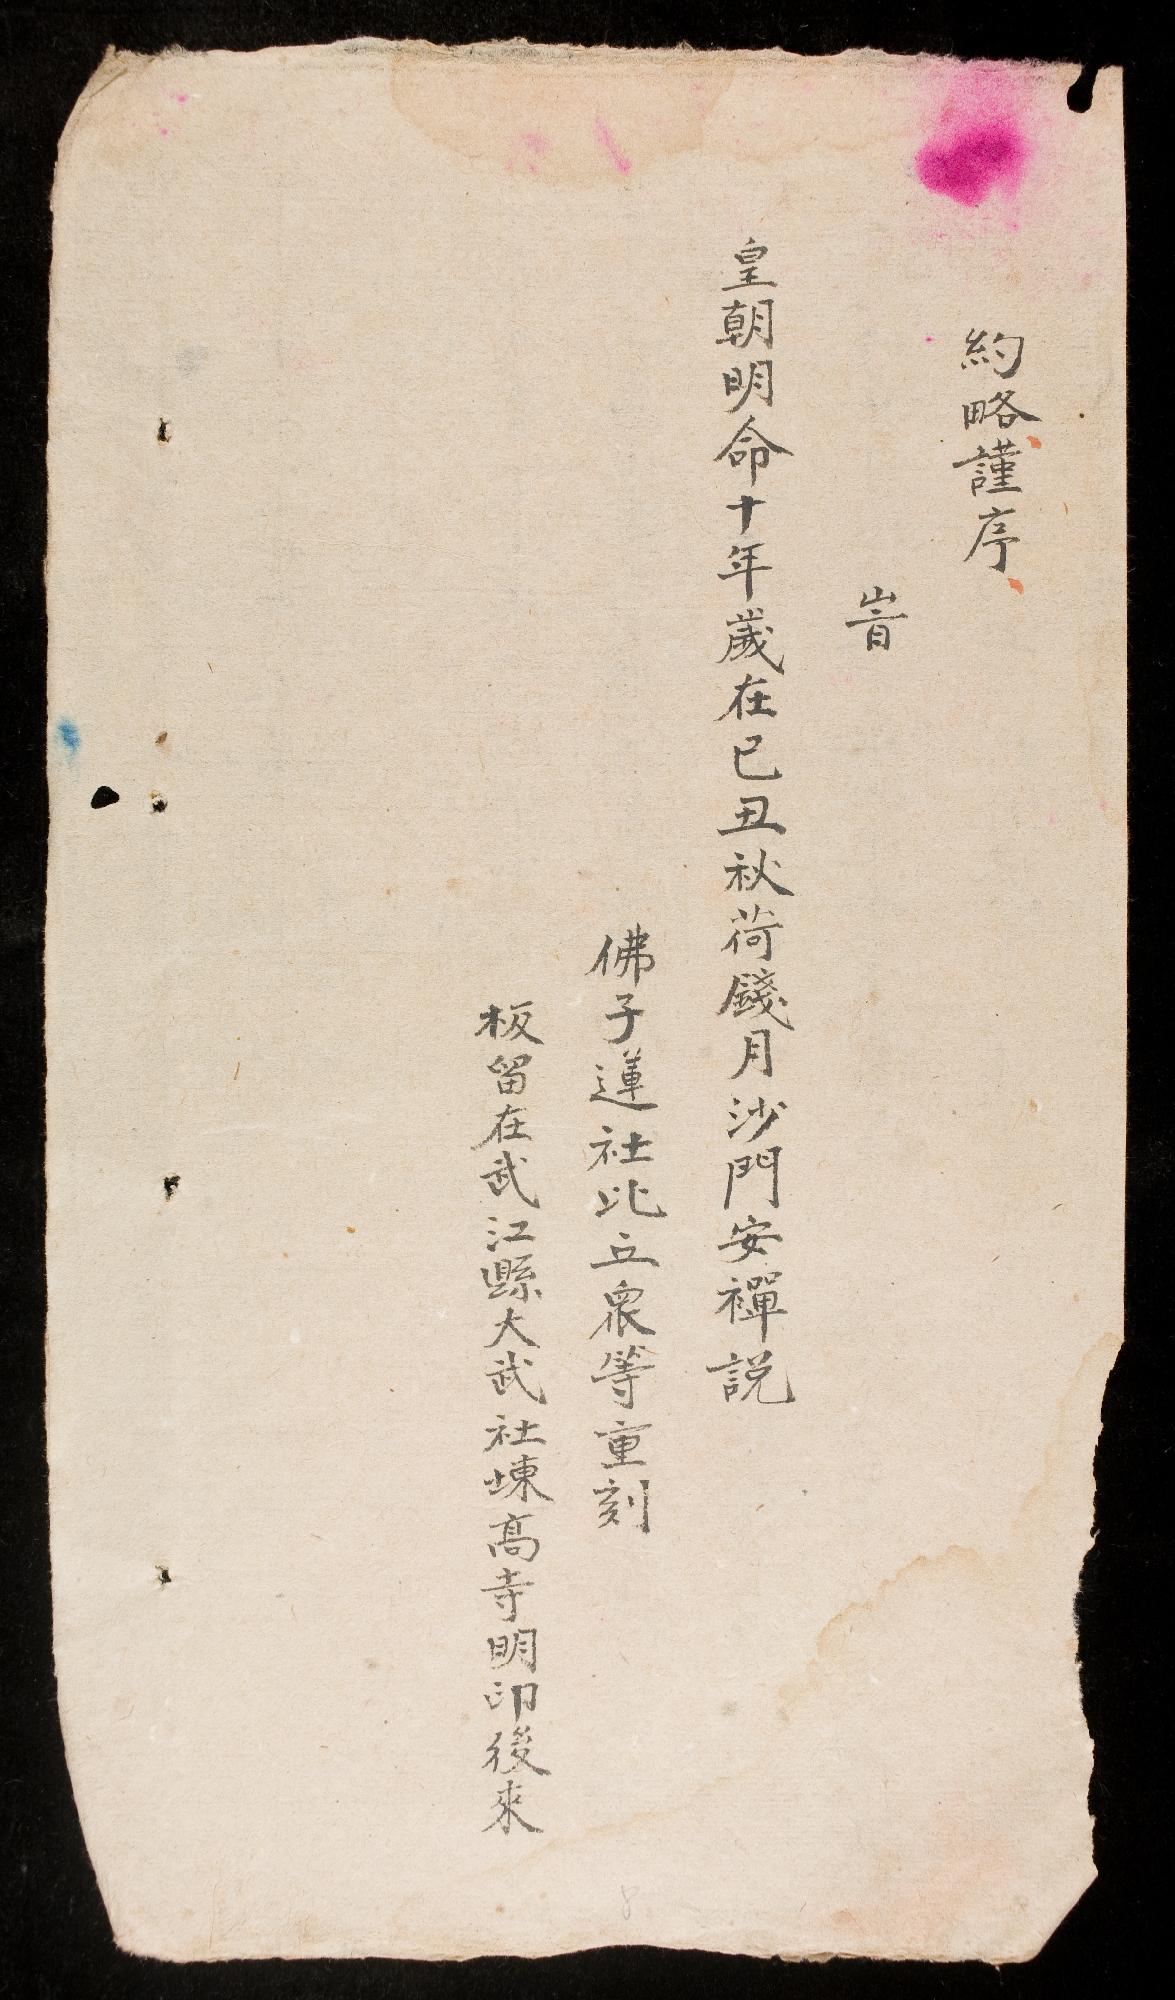 約略謹序
旹
皇朝明命十年歲在己丑秋荷錢月沙門安禪説
佛子蓮社比丘衆等重刻
板留在武江縣大武社堜高寺明印後來
8